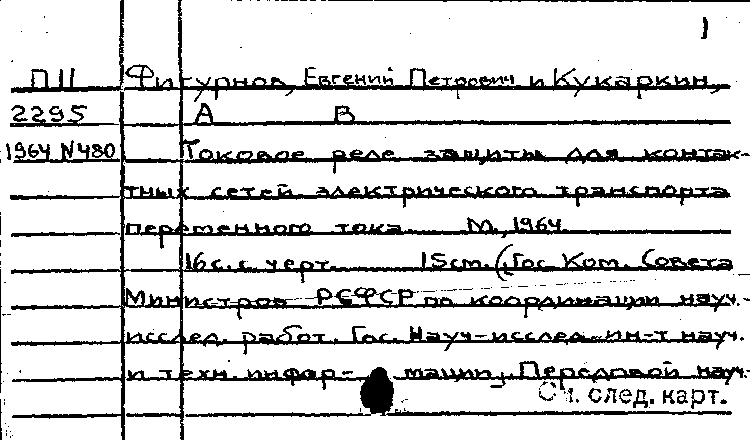 1
П11 Фигурнов, Евгений Петрович и Кукаркин,
2295 А В
1964 N480 Токовое реле защиты для контак-
тных сетей электрического транспорта
переменного тока. М., 1964.
16 с. с черт. 15 см. (Гос Ком. Совета
Министров РСФСР по координации науч.-
исслед. работ. Гос. Науч-исслед. ин-т науч.
и техн. инфор- мации, Передовой науч.-
См. след. карт.